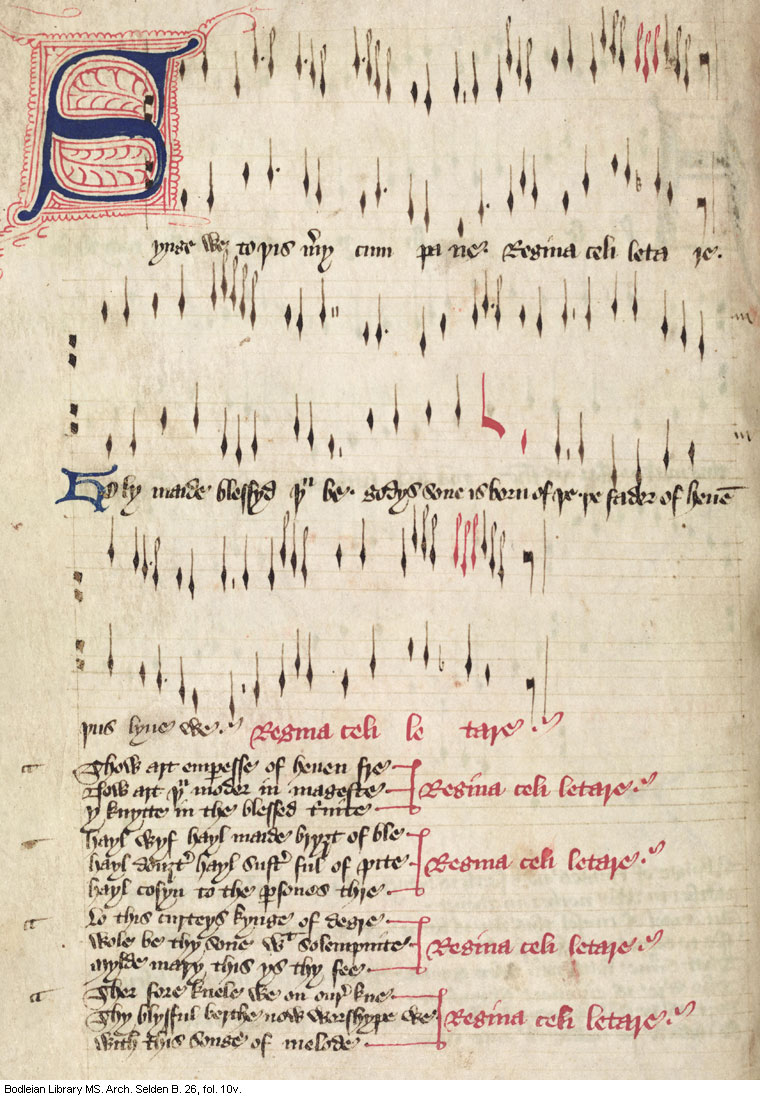 Synge we to þis mͬy cum pa ne Regina celi leta re
Holy maide blessyd þᵘ be godys sone is born of þe þe fader of heuē
þus synge we Regina celi le tare
Thow art empesse of heuen fre
Now art þᵘ moder in mageste Regina celi letare
y knytte in the blessed t̾nite
Hayl wyf hayl maide bryȝt of ble
hayl douȝt̾ hayl sust̾ ful of pite Regina celi letare
hayl cosyn to the ꝑsones thre
Lo this curteys kynge of degre
wole be thy sone wᵗ solempnite Regina celi letare
mylde mary this ys thy fee
Ther fore knele we on our̾ kne
Thy blysful berthe now worshype we Regina celi letare
with this songe of melode
Bodleian Library MS. Arch. Selden B. 26, fol. 10v.